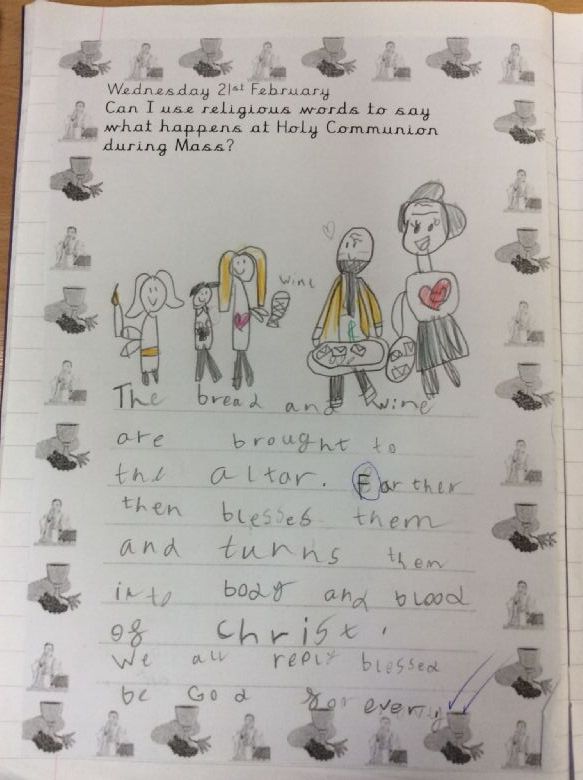 Wednesday 21st February
Can I use religious words to say
what happens at Holy Communion
during Mass?
wine
The bread and wine
are brought to
the altar. Farther
then blesses them
and turns then
into body and blood
of christ.
We all reply blessed
be God for ever